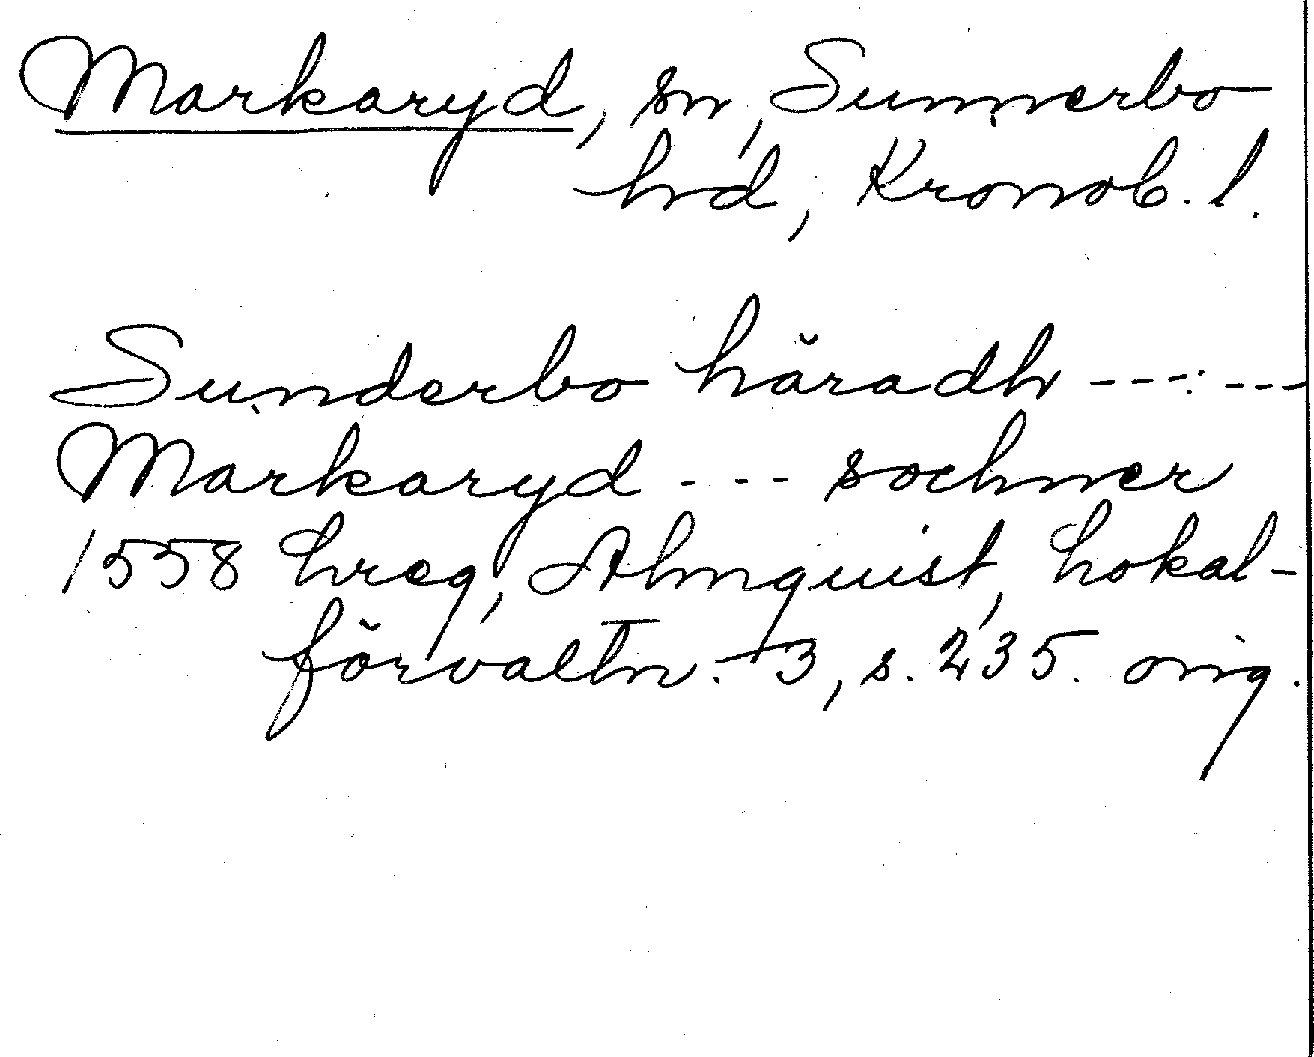 Markaryd, sn, Sunnerbo
hd, Kronob. l.
Sunderbo häradh ------
Markaryd --- sochner
1558 hreg, Almquist, Lokal-
förvaltn. 3, s. 235. orig.